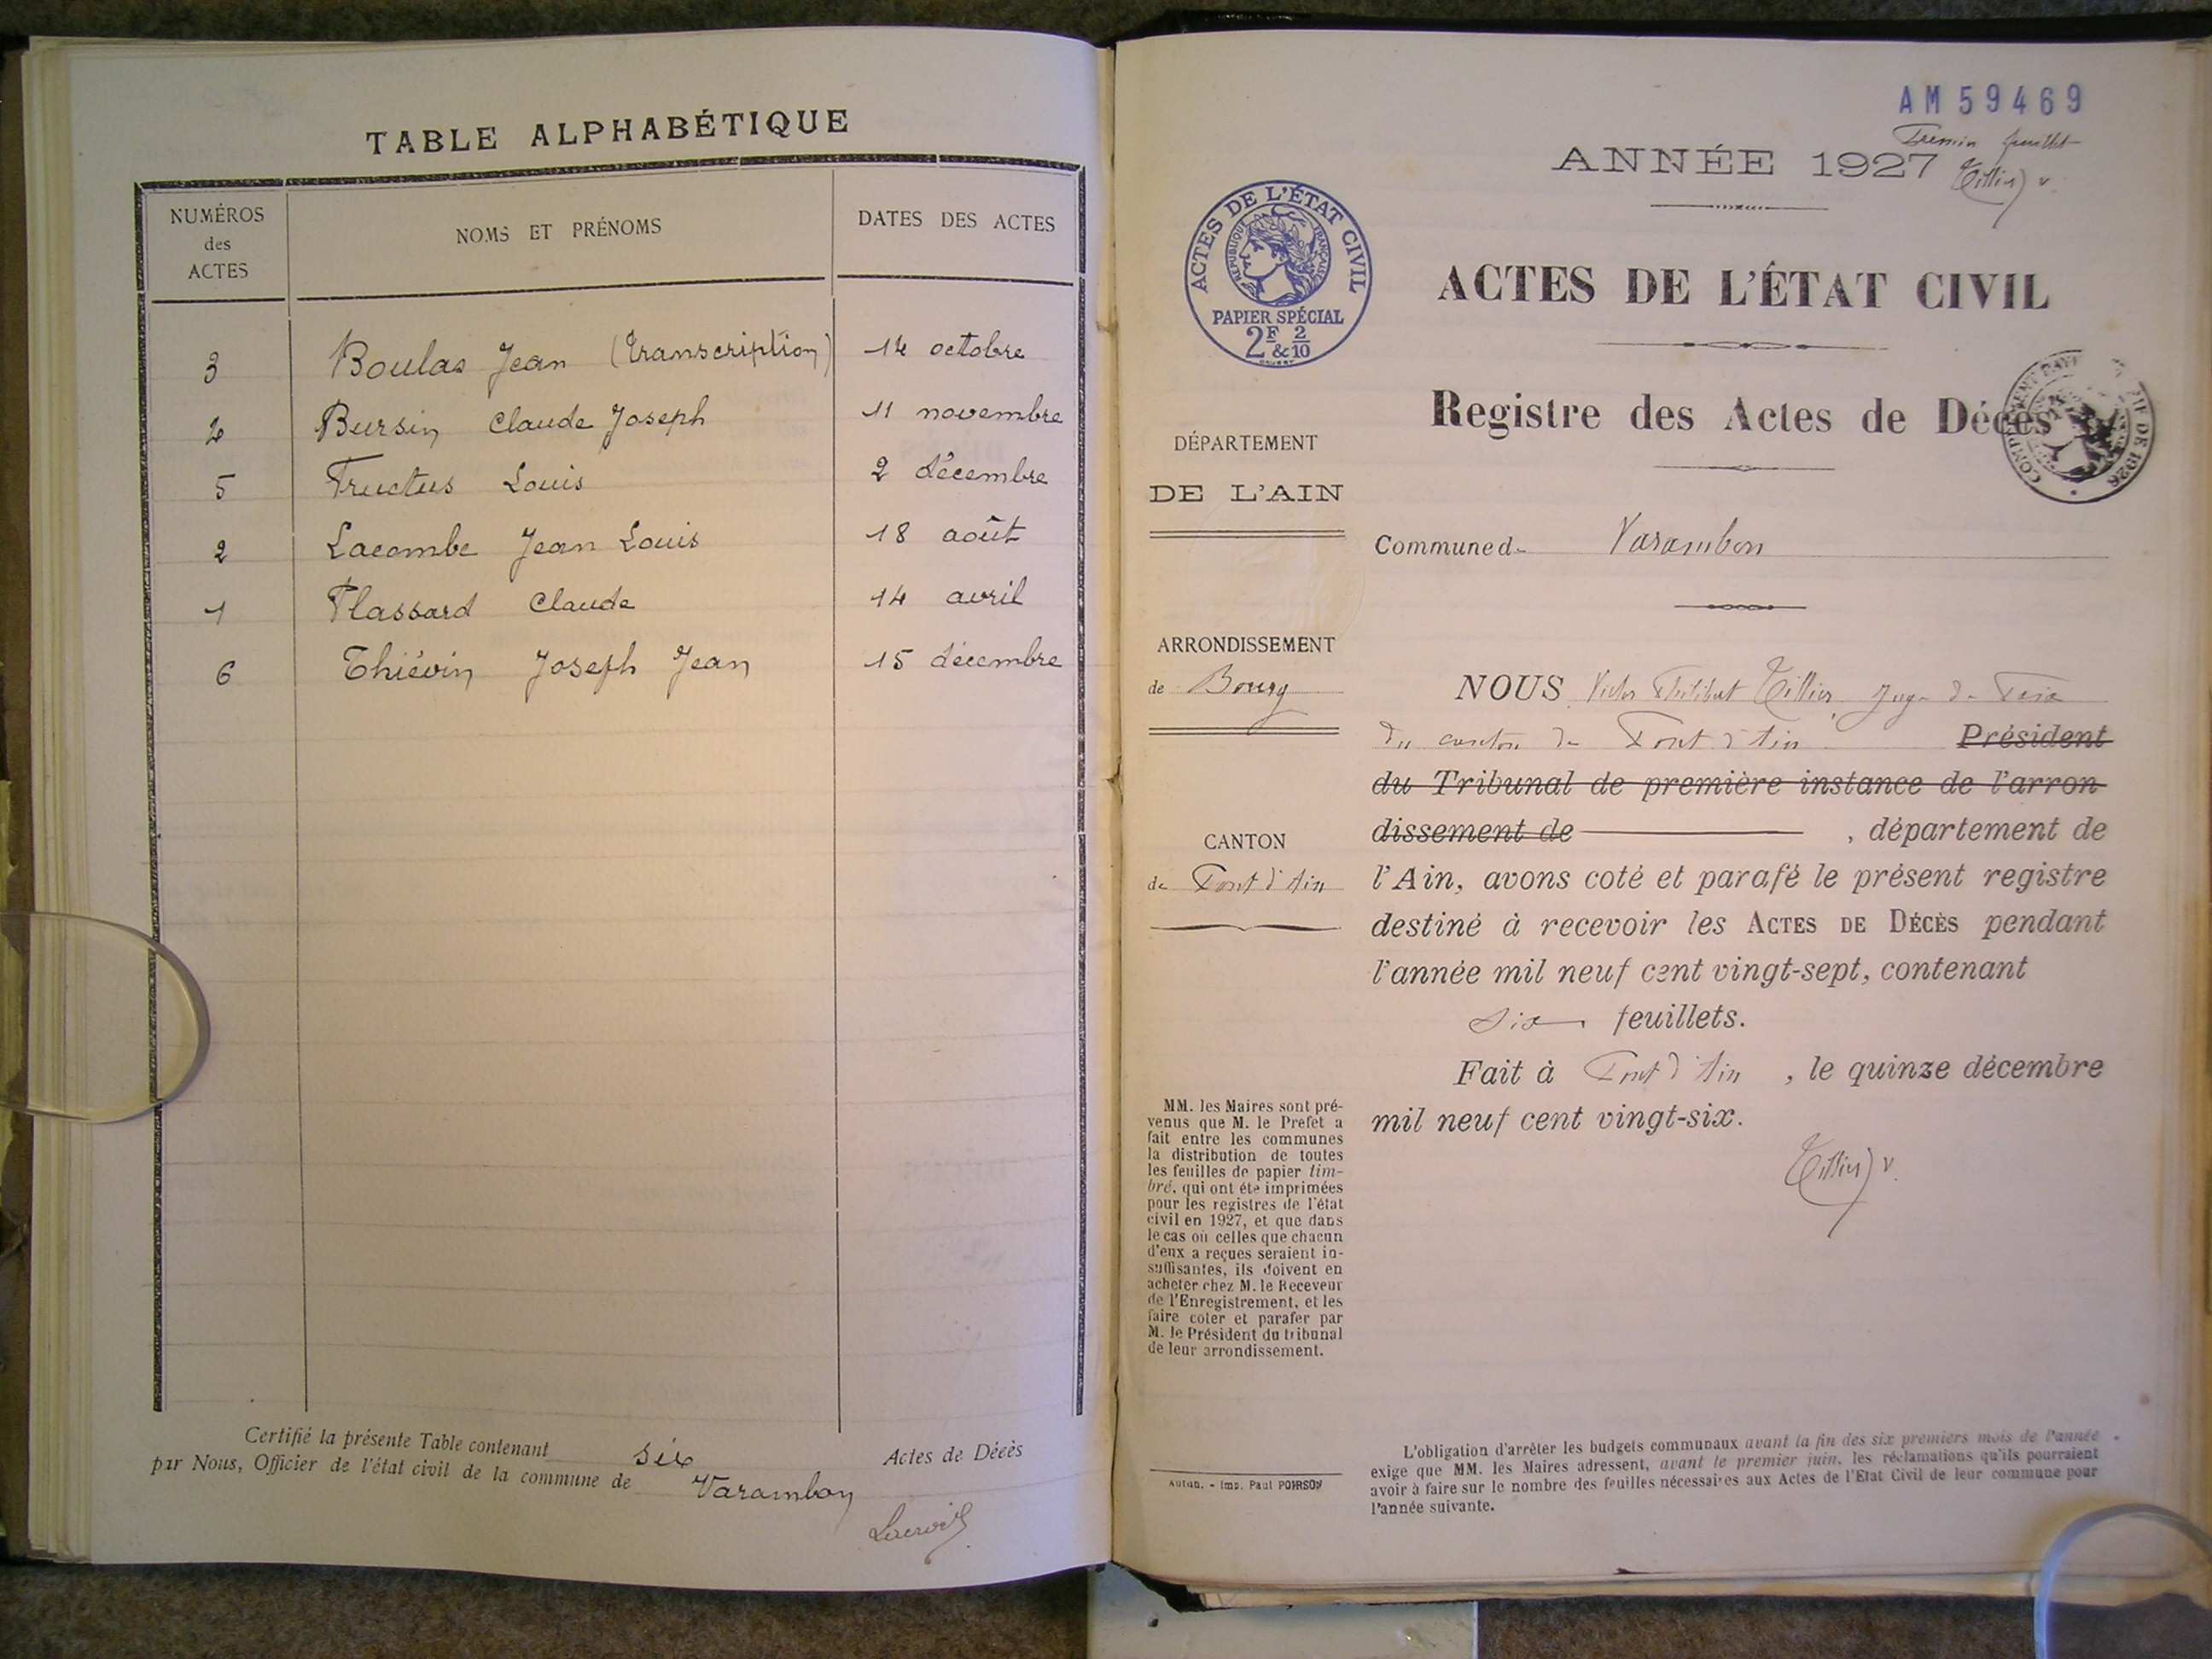 TABLE ALPHABÉTIQUE
NUMÉROS des ACTES
NOMS ET PRÉNOMS
DATES DES ACTES
3 Boulas Jean (transcription) 14 octobre
4 Bursin Claude Joseph 11 novembre
5 Fructus Louis 2 décembre
2 Lacombe Jean Louis 18 août
1 Plassard Claude 14 avril
6 Thiévin Joseph Jean 15 décembre
Certifié la présente Table contenant six Actes de Décès
par Nous, Officier de l'état civil de la commune de Varambon
Lacroix
AM 59469
Premier feuillet
ANNÉE 1927
Tillier v.
ACTES DE L'ÉTAT CIVIL
RÉPUBLIQUE FRANÇAISE
PAPIER SPÉCIAL
2F & 2/10
ACTES DE L'ÉTAT CIVIL
Registre des Actes de Décès
DE 1926
DÉPARTEMENT
DE L'AIN
Commune d- Varambon
ARRONDISSEMENT
de Bourg
CANTON
de Pont d'Ain
NOUS Victor Philibert Tillier Juge de Paix
du canton de Pont d'Ain Président
du Tribunal de première instance de l'arron
dissement de , département de
l'Ain, avons coté et parafé le présent registre
destiné à recevoir les ACTES DE DÉCÈS pendant
l'année mil neuf cent vingt-sept, contenant
six feuillets.
Fait à Pont d'Ain , le quinze décembre
mil neuf cent vingt-six.
Tillier v.
MM. les Maires sont pré-
venus que M. le Prefet a
fait entre les communes
la distribution de toutes
les feuilles de papier tim-
bré, qui ont été imprimées
pour les registres de l'état
civil en 1927, et que dans
le cas où celles que chacun
d'eux a reçues seraient in-
suffisantes, ils doivent en
acheter chez M. le Receveur
de l'Enregistrement, et les
faire coter et parafer par
M. le Président du tribunal
de leur arrondissement.
Autun. - Imp. Paul POIRSON
L'obligation d'arrêter les budgets communaux avant la fin des six premiers mois de l'année
exige que MM. les Maires adressent, avant le premier juin, les réclamations qu'ils pourraient
avoir à faire sur le nombre des feuilles nécessaires aux Actes de l'Etat Civil de leur commune pour
l'année suivante.